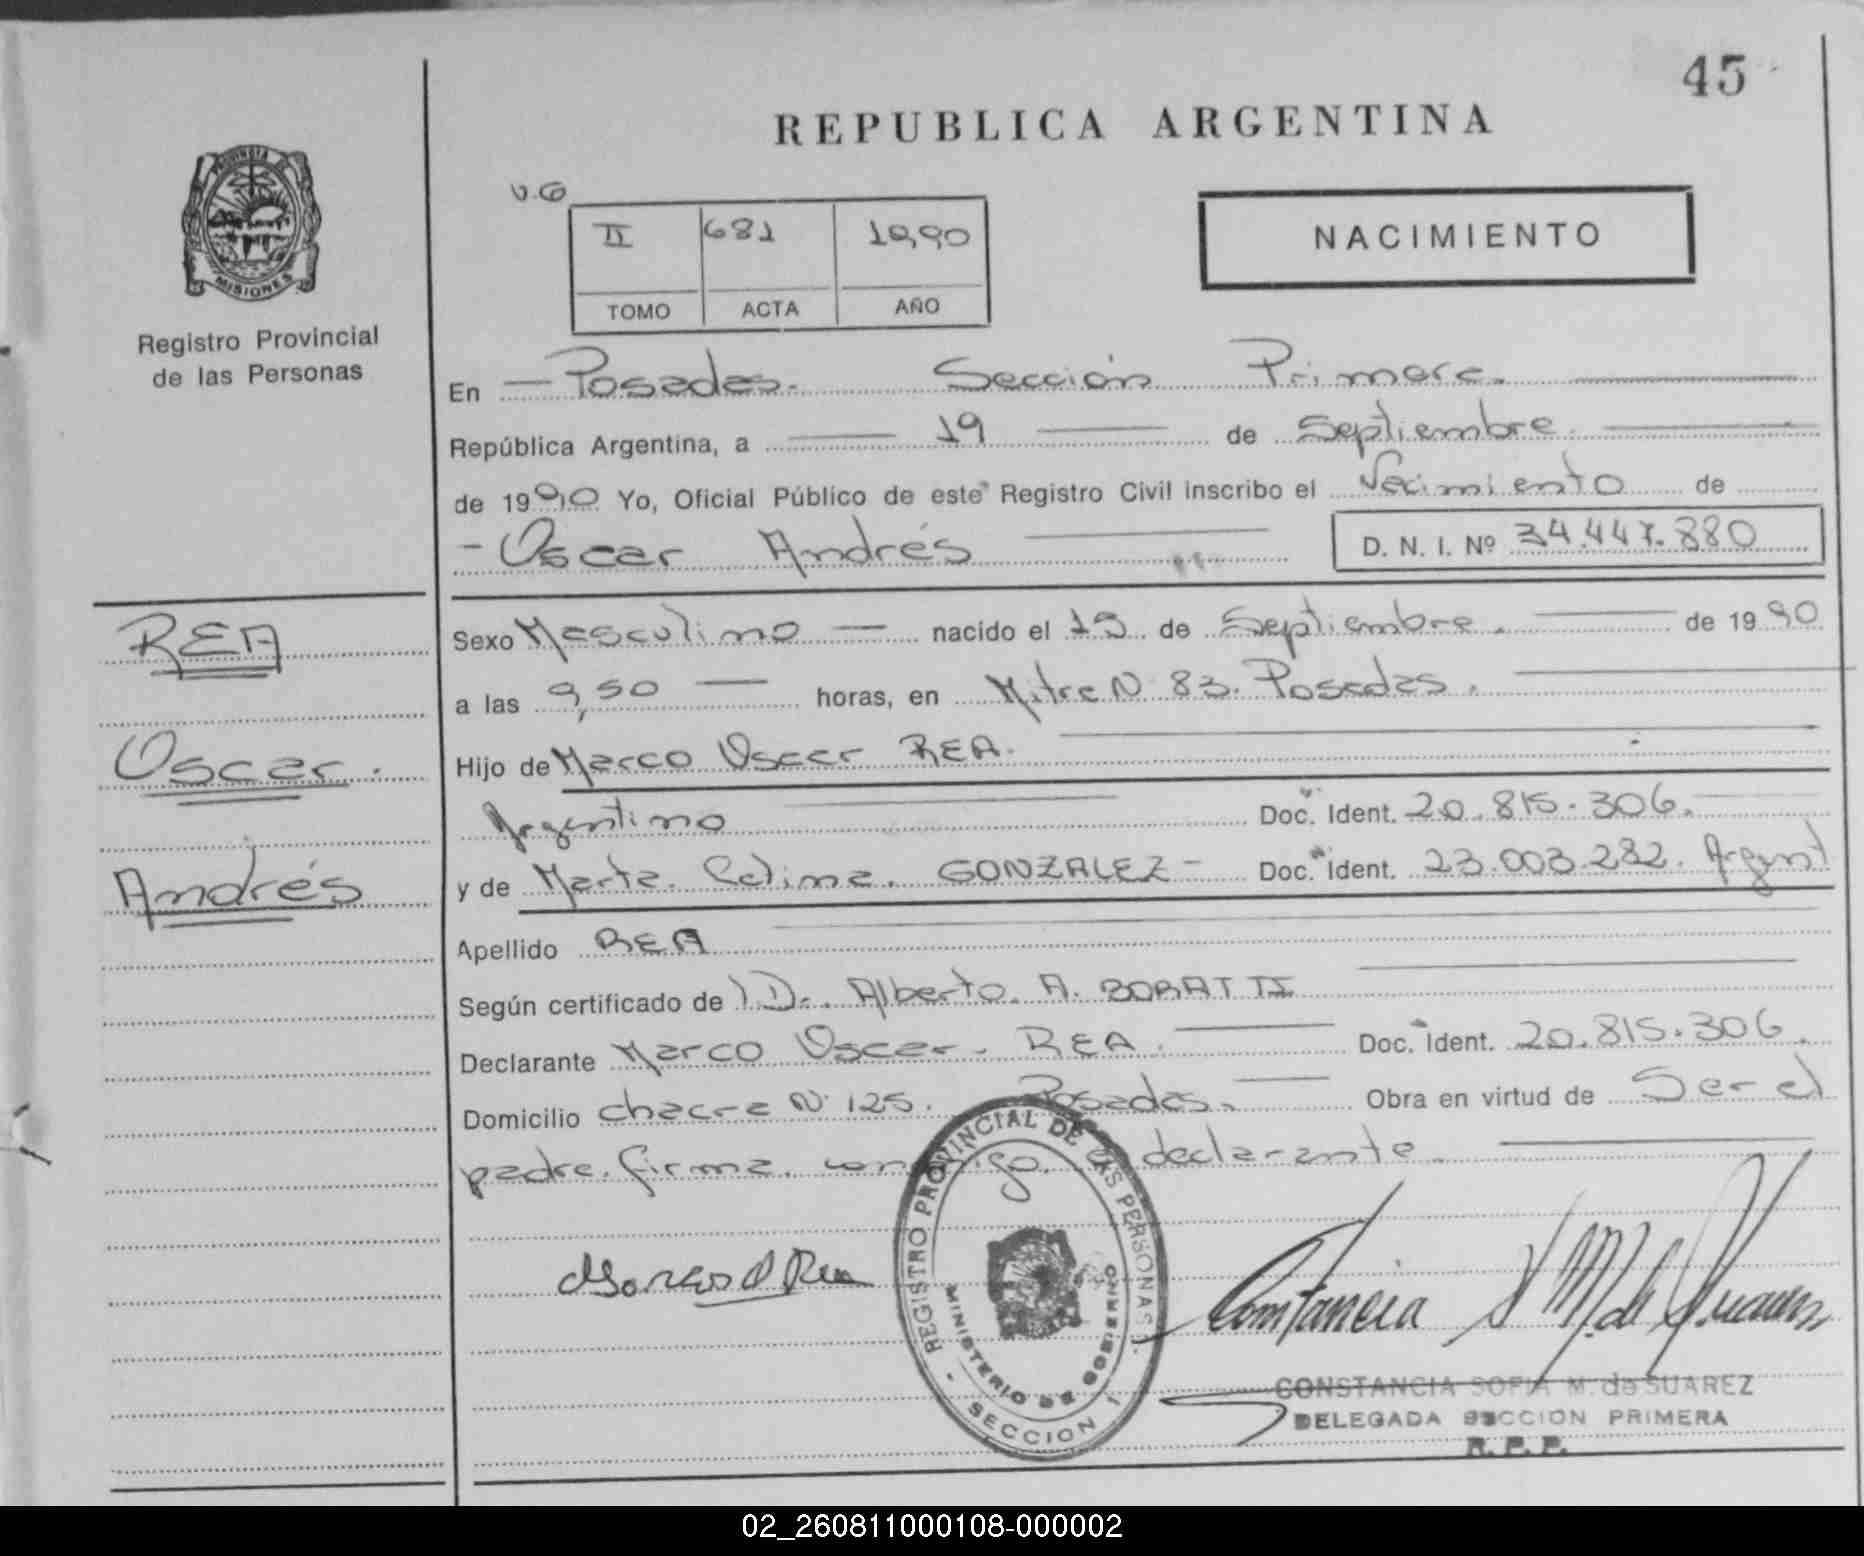 45
REPUBLICA ARGENTINA
PROVINCIA DE
MISIONES
Registro Provincial
de las Personas
v.G
II 681 1990
TOMO ACTA AÑO
NACIMIENTO
En Posadas. Sección Primera.
República Argentina, a 19 de Septiembre.
de 1990 Yo, Oficial Público de este Registro Civil inscribo el Nacimiento de
Oscar Andrés D. N. I. Nº 34.447.880
REA
Oscar.
Andrés
Sexo Masculino nacido el 19 de Septiembre. de 1990
a las 9,50 horas, en Mitre N 83. Posadas.
Hijo de Marco Oscar REA.
Argentino Doc. Ident. 20.815.306.
y de Marta. Celima. GONZALEZ - Doc. Ident. 23.003.282. Argent.
Apellido REA
Según certificado de Dr. Alberto. A. BORATTI
Declarante Marco Oscar. REA. Doc. Ident. 20.815.306.
Domicilio chacra N. 125. Posadas. Obra en virtud de Ser el
padre. firma. conmigo. declarante.
REGISTRO PROVINCIAL DE LAS PERSONAS
MINISTERIO DE GOBIERNO
- SECCION 1
Constancia S M. de Suarez
CONSTANCIA SOFIA M. de SUAREZ
DELEGADA SECCION PRIMERA
R. P. P.
02_260811000108-000002